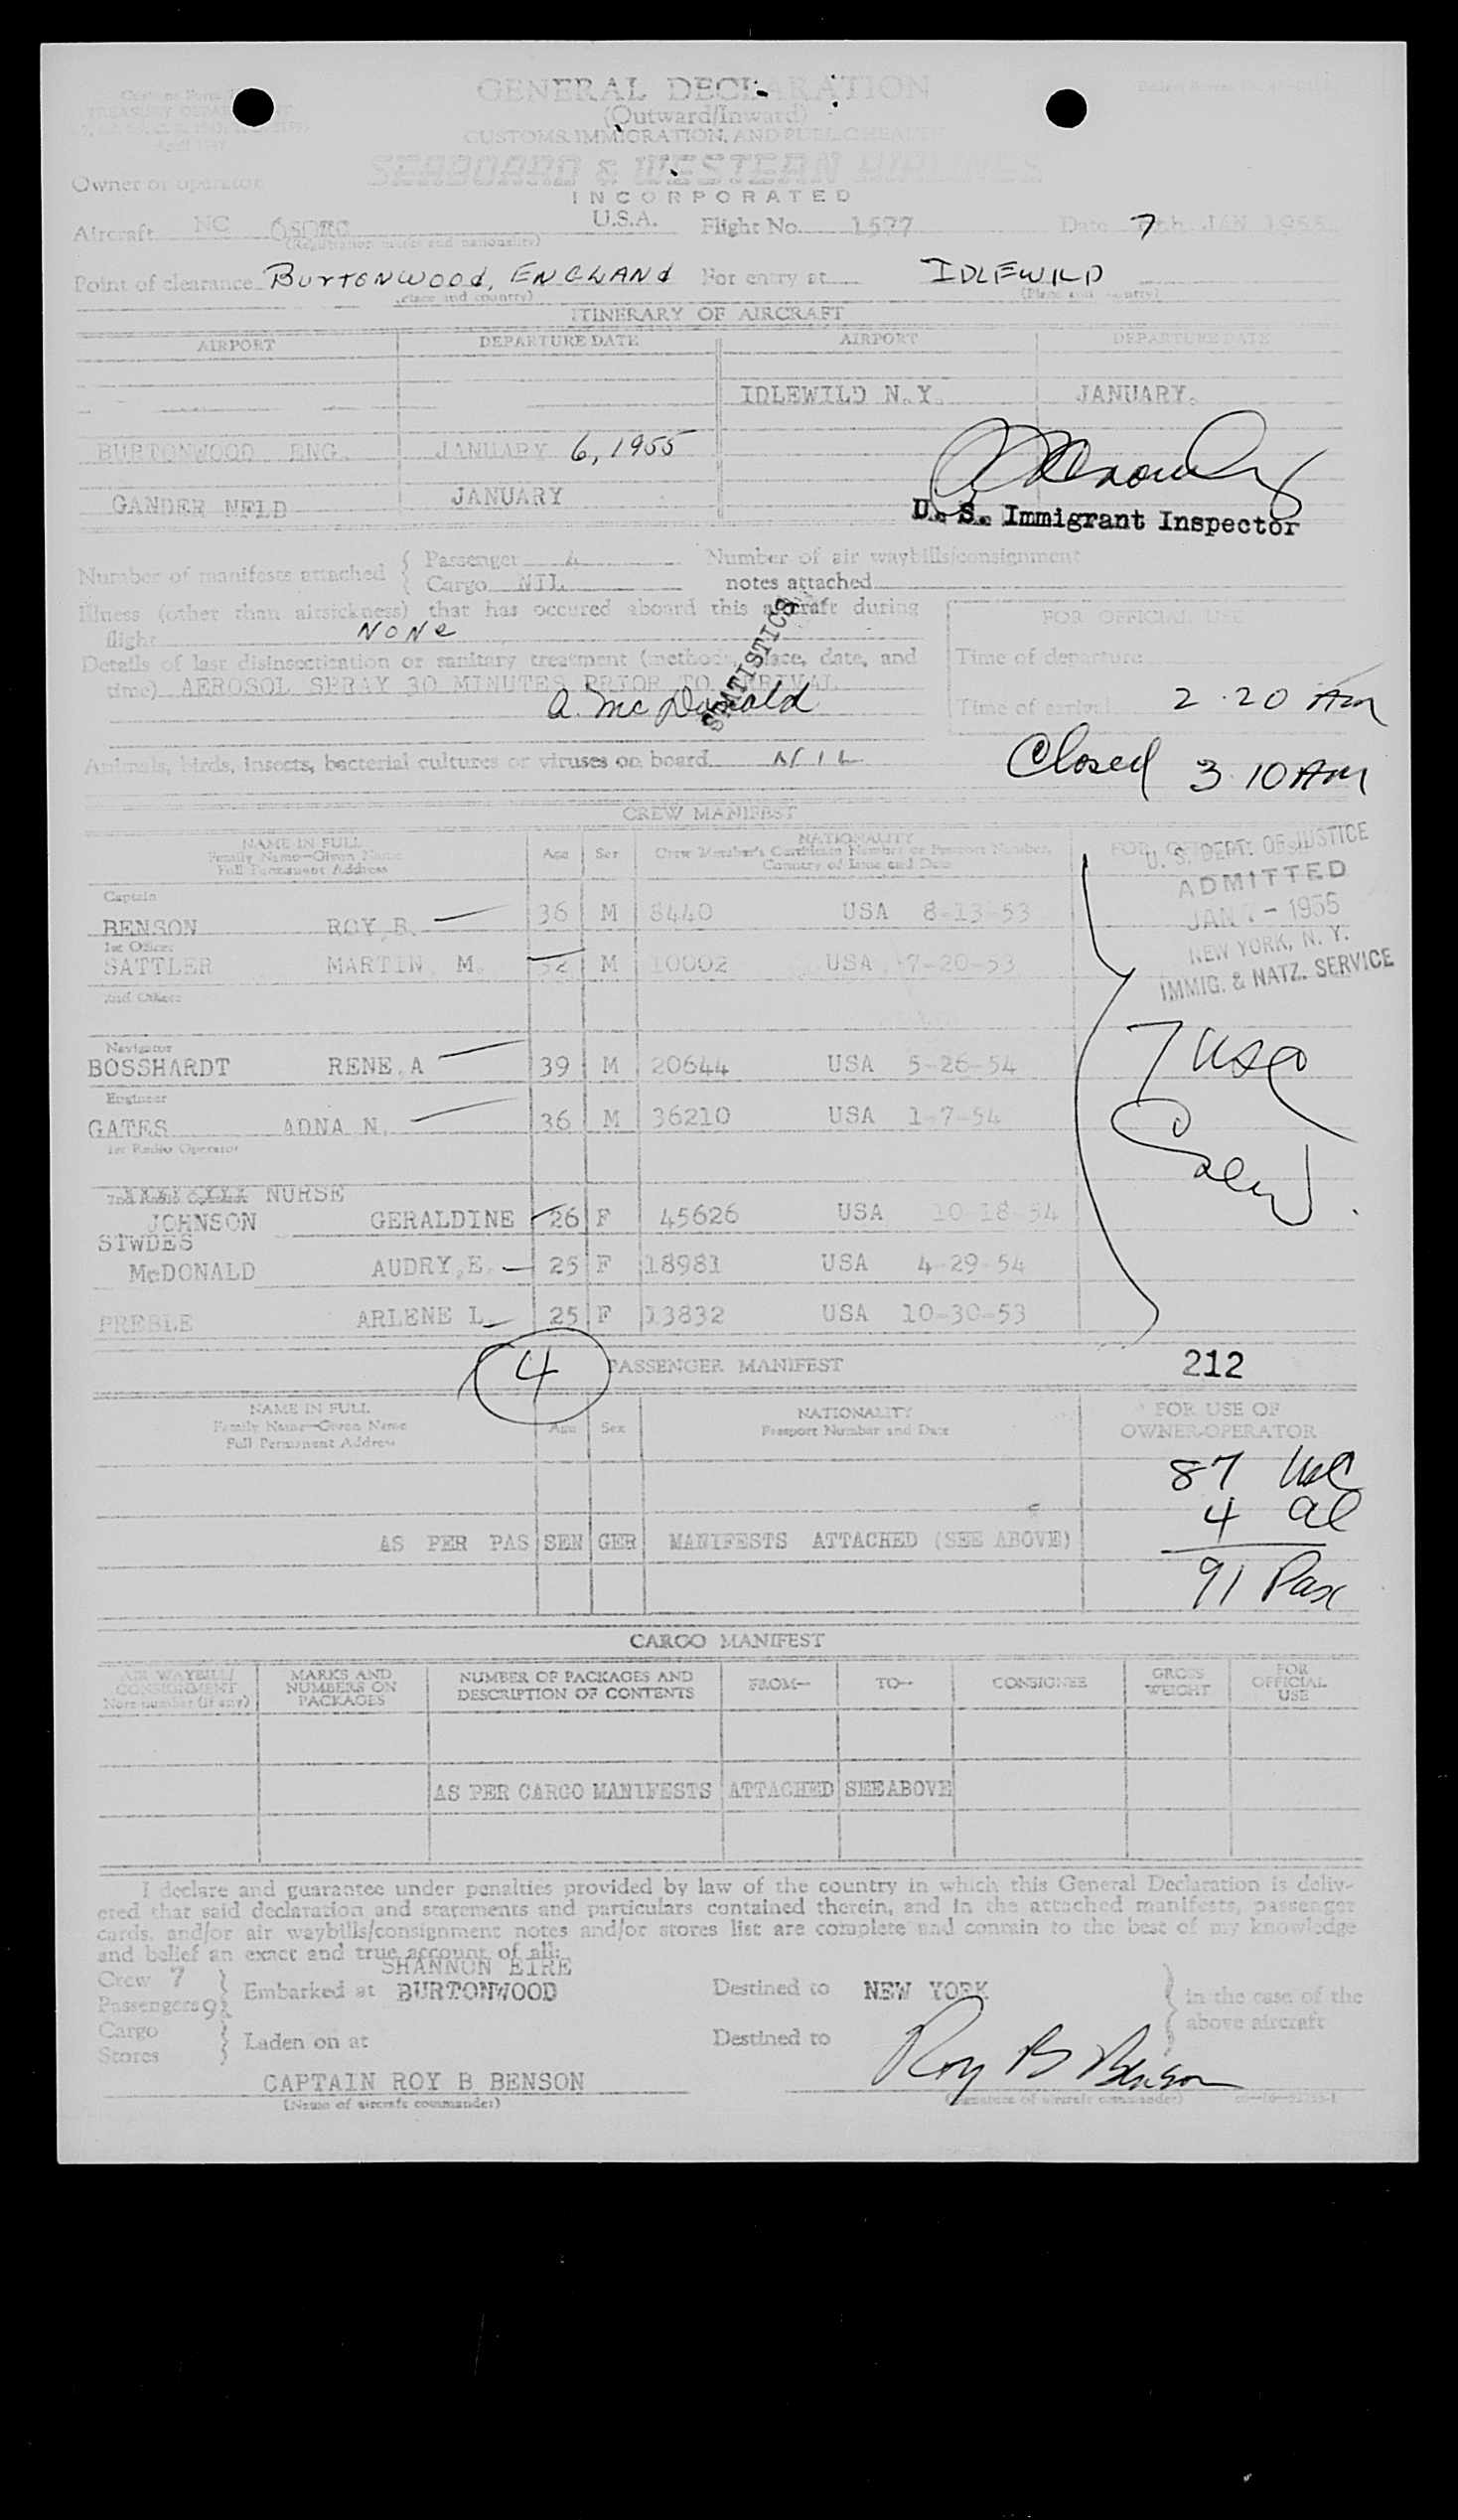 GENERAL DECLARATION
(Outward/Inward)
CUSTOMS, IMMIGRATION, AND PUBLIC HEALTH
Owner or operator SEABOARD & WESTERN AIRLINES
INCORPORATED
Aircraft NC U.S.A. Flight No. 1577 Date 7 JAN 1955
(Registration marks and nationality)
Point of clearance BURTONWOOD, ENGLAND For entry at IDLEWILD
(Place and country) (Place and country)
ITINERARY OF AIRCRAFT
AIRPORT DEPARTURE DATE AIRPORT DEPARTURE DATE
IDLEWILD N.Y. JANUARY.
BURTONWOOD ENG. JANUARY 6, 1955
GANDER NFLD JANUARY
U. S. Immigrant Inspector
Number of manifests attached { Passenger 4 Number of air waybills/consignment
Cargo NIL notes attached
Illness (other than airsickness) that has occured aboard this aircraft during
flight NONE
FOR OFFICIAL USE
Details of last disinsectization or sanitary treatment (method, place, date, and
time) AEROSOL SPRAY 30 MINUTES PRIOR TO ARRIVAL
STATISTICS
Time of departure
A. McDonald
Time of arrival 2.20 AM
Animals, birds, insects, bacterial cultures or viruses on board NIL
Closed 3.10 AM
CREW MANIFEST
NAME IN FULL Age Sex NATIONALITY
Family Name—Given Name Crew Member's Certificate Number or Passport Number,
Full Permanent Address Country of Issue and Date
U. S. DEPT. OF JUSTICE
ADMITTED
JAN 7 - 1955
NEW YORK, N. Y.
IMMIG. & NATZ. SERVICE
Captain
BENSON ROY B. 36 M 8440 USA 8-13-53
1st Officer
SATTLER MARTIN M. 32 M 10002 USA 7-20-53
2nd Officer
Navigator
BOSSHARDT RENE A 39 M 20644 USA 5-26-54
7 USC
Engineer
GATES ADNA N. 36 M 36210 USA 1-7-54
1st Radio Operator
2nd Radio Operator NURSE
JOHNSON GERALDINE 26 F 45626 USA 10-18-54
STWDES
McDONALD AUDRY,E. 25 F 18981 USA 4-29-54
PREBLE ARLENE L 25 F 13832 USA 10-30-53
4 PASSENGER MANIFEST 212
NAME IN FULL Age Sex NATIONALITY FOR USE OF
Family Name—Given Name Passport Number and Date OWNER-OPERATOR
Full Permanent Address
87 USC
4 al
AS PER PASSENGER MANIFESTS ATTACHED (SEE ABOVE)
91 Pax
CARGO MANIFEST
AIR WAYBILL/ CONSIGNMENT Note number (if any) MARKS AND NUMBERS ON PACKAGES NUMBER OF PACKAGES AND DESCRIPTION OF CONTENTS FROM— TO— CONSIGNEE GROSS WEIGHT FOR OFFICIAL USE
AS PER CARGO MANIFESTS ATTACHED SEE ABOVE
I declare and guarantee under penalties provided by law of the country in which this General Declaration is deliv-
ered that said declaration and statements and particulars contained therein, and in the attached manifests, passenger
cards, and/or air waybills/consignment notes and/or stores list are complete and contain to the best of my knowledge
and belief an exact and true account of all:
SHANNON EIRE
Crew 7
Passengers 91 } Embarked at BURTONWOOD Destined to NEW YORK } in the case of the
above aircraft
Cargo
Stores } Laden on at Destined to
CAPTAIN ROY B BENSON Roy B Benson
(Name of aircraft commander) (Signature of aircraft commander)